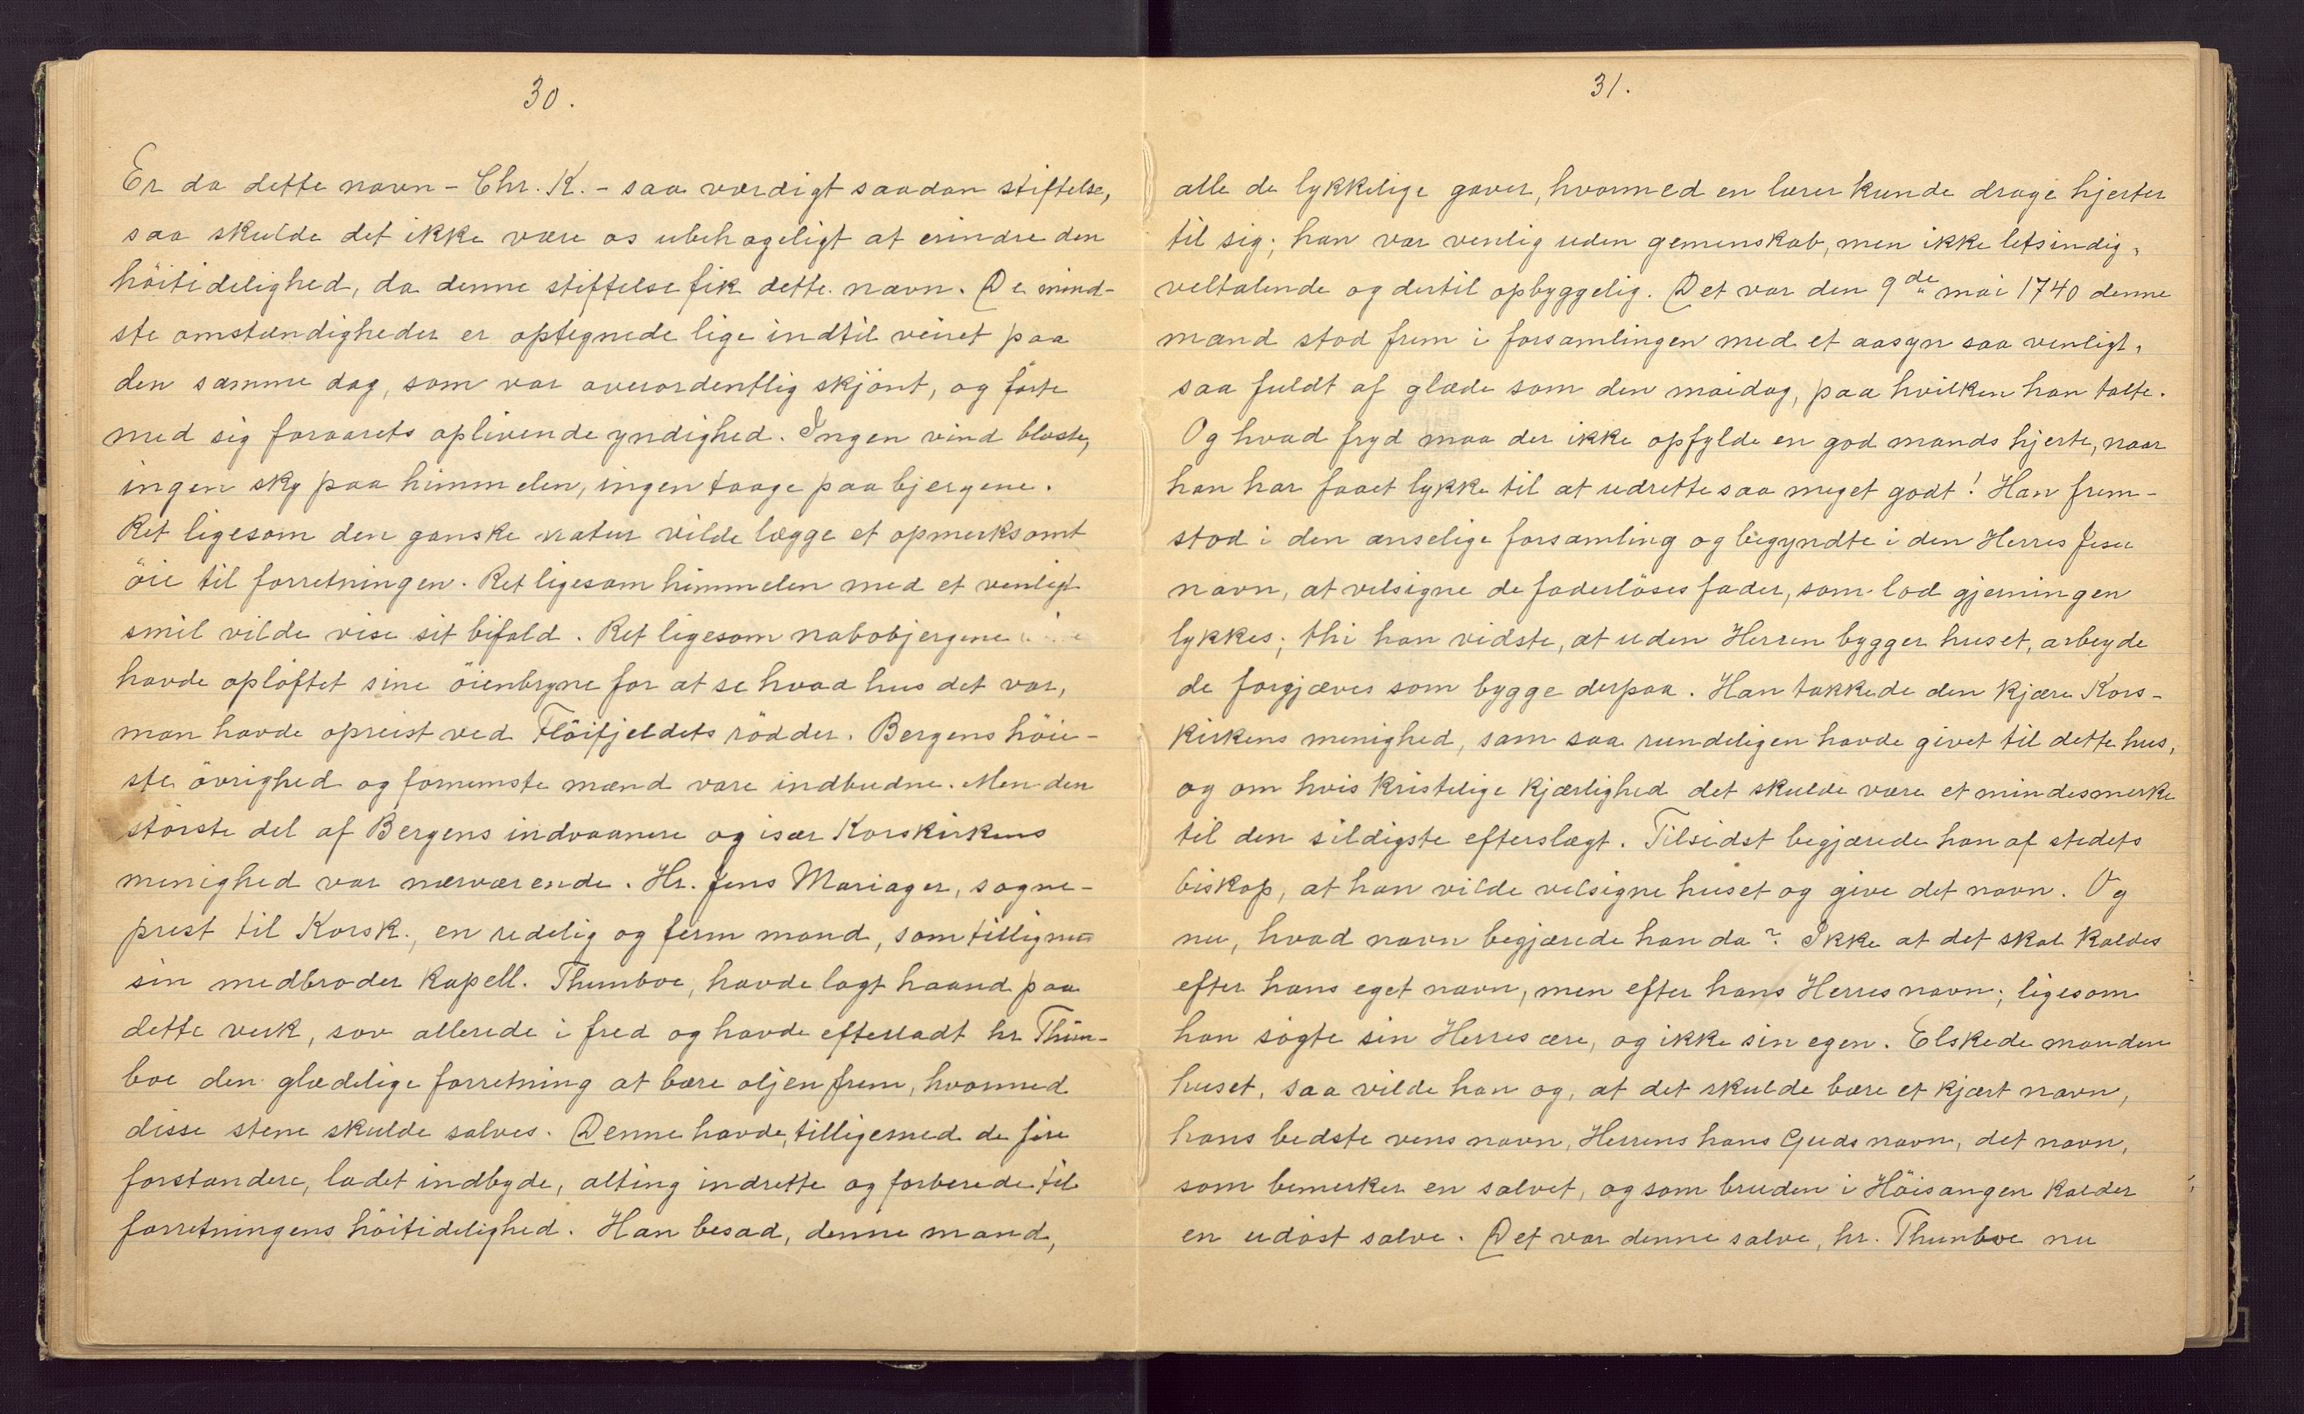 30.
Er da dette navn - Chr. K. - saa værdigt saadan stiftelse,
saa skulde det ikke være os ubehageligt at erindre den
höitidelighed, da denne stiftelse fik dette navn. De mind-
ste omstændigheder er optegnede lige indtil veiret paa
den samme dag, som var overordentlig skjönt, og förte
med sig foraarets oplivende yndighed. Ingen vind blæste,
ingen sky paa himmelen, ingen taage paa bjergene.
Ret ligesom den ganske natur vilde lægge et opmerksomt
öie til forretningen. Ret ligesom himmelen med et venligt
smil vilde vise sit bifald. Ret ligesom nabobjergene
havde oplöftet sine öienbryne for at se hvad hus det var,
man havde opreist ved Flöifjeldets rödder. Bergens höie-
ste övrighed og fornemste mænd vare indbudne. Men den
störste del af Bergens indvaanere og især Korskirkens
menighed var nærværende. Hr. Jens Mariager, sogne-
prest til Korsk., en redelig og ferm mand, som tilligemed
sin medbroder kapell. Thunboe, havde lagt haand paa
dette verk, sov allerede i fred og havde efterladt hr Thun-
boe den glædelige forretning at bære oljen frem, hvormed
disse stene skulde salves. Denne havde, tilligemed de fire
forstandere, ladet indbyde, alting indrette og forberede til
forretningens höitidelighed. Han besad, denne mand,
31.
alle de lykkelige gaver, hvormed en lærer kunde drage hjerter
til sig; han var venlig uden gemenskab, men ikke letsindig,
veltalende og dertil opbyggelig. Det var den 9de mai 1740 denne
mand stod frem i forsamlingen med et aasyn saa venligt,
saa fuldt af glæde som den maidag, paa hvilken han talte.
Og hvad fryd maa der ikke opfylde en god mands hjerte, naar
han har faaet lykke til at udrette saa meget godt! Han frem-
stod i den anselige forsamling og begyndte i den Herres Jesu
navn, at velsigne de faderlöses fader, som lod gjerningen
lykkes; thi han vidste, at uden Herren bygger huset, arbeyde
de forgjæves som bygge derpaa. Han takkede den kjære Kors-
kirkens menighed, som saa rundeligen havde givet til dette hus,
og om hvis kristelige kjærlighed det skulde være et mindesmerke
til den sildigste efterslægt. Tilsidst begjærede han af stedets
biskop, at han vilde velsigne huset og give det navn. Og
nu, hvad navn begjærede han da? Ikke at det skal kaldes
efter hans eget navn, men efter hans Herres navn; ligesom
han sögte sin Herres ære, og ikke sin egen. Elskede manden
huset, saa vilde han og, at det skulde bære et kjært navn,
hans bedste vens navn, Herrens hans Guds navn, det navn,
som bemerker en salvet, og som bruden i Höisangen kalder
en udöst salve. Det var denne salve, hr. Thunboe nu